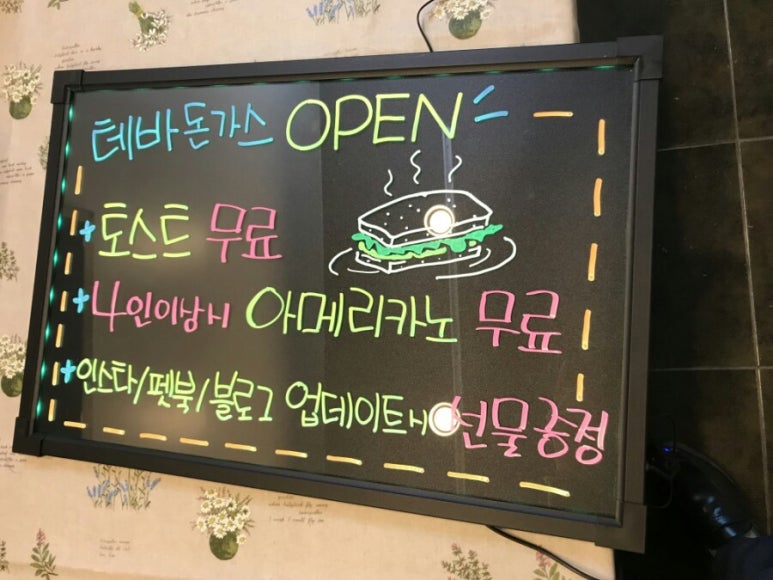 테바돈가스 OPEN
+토스트 무료
+4인이상시 아메리카노 무료
+인스타/펫북/블로그 업데이트시 선물증정